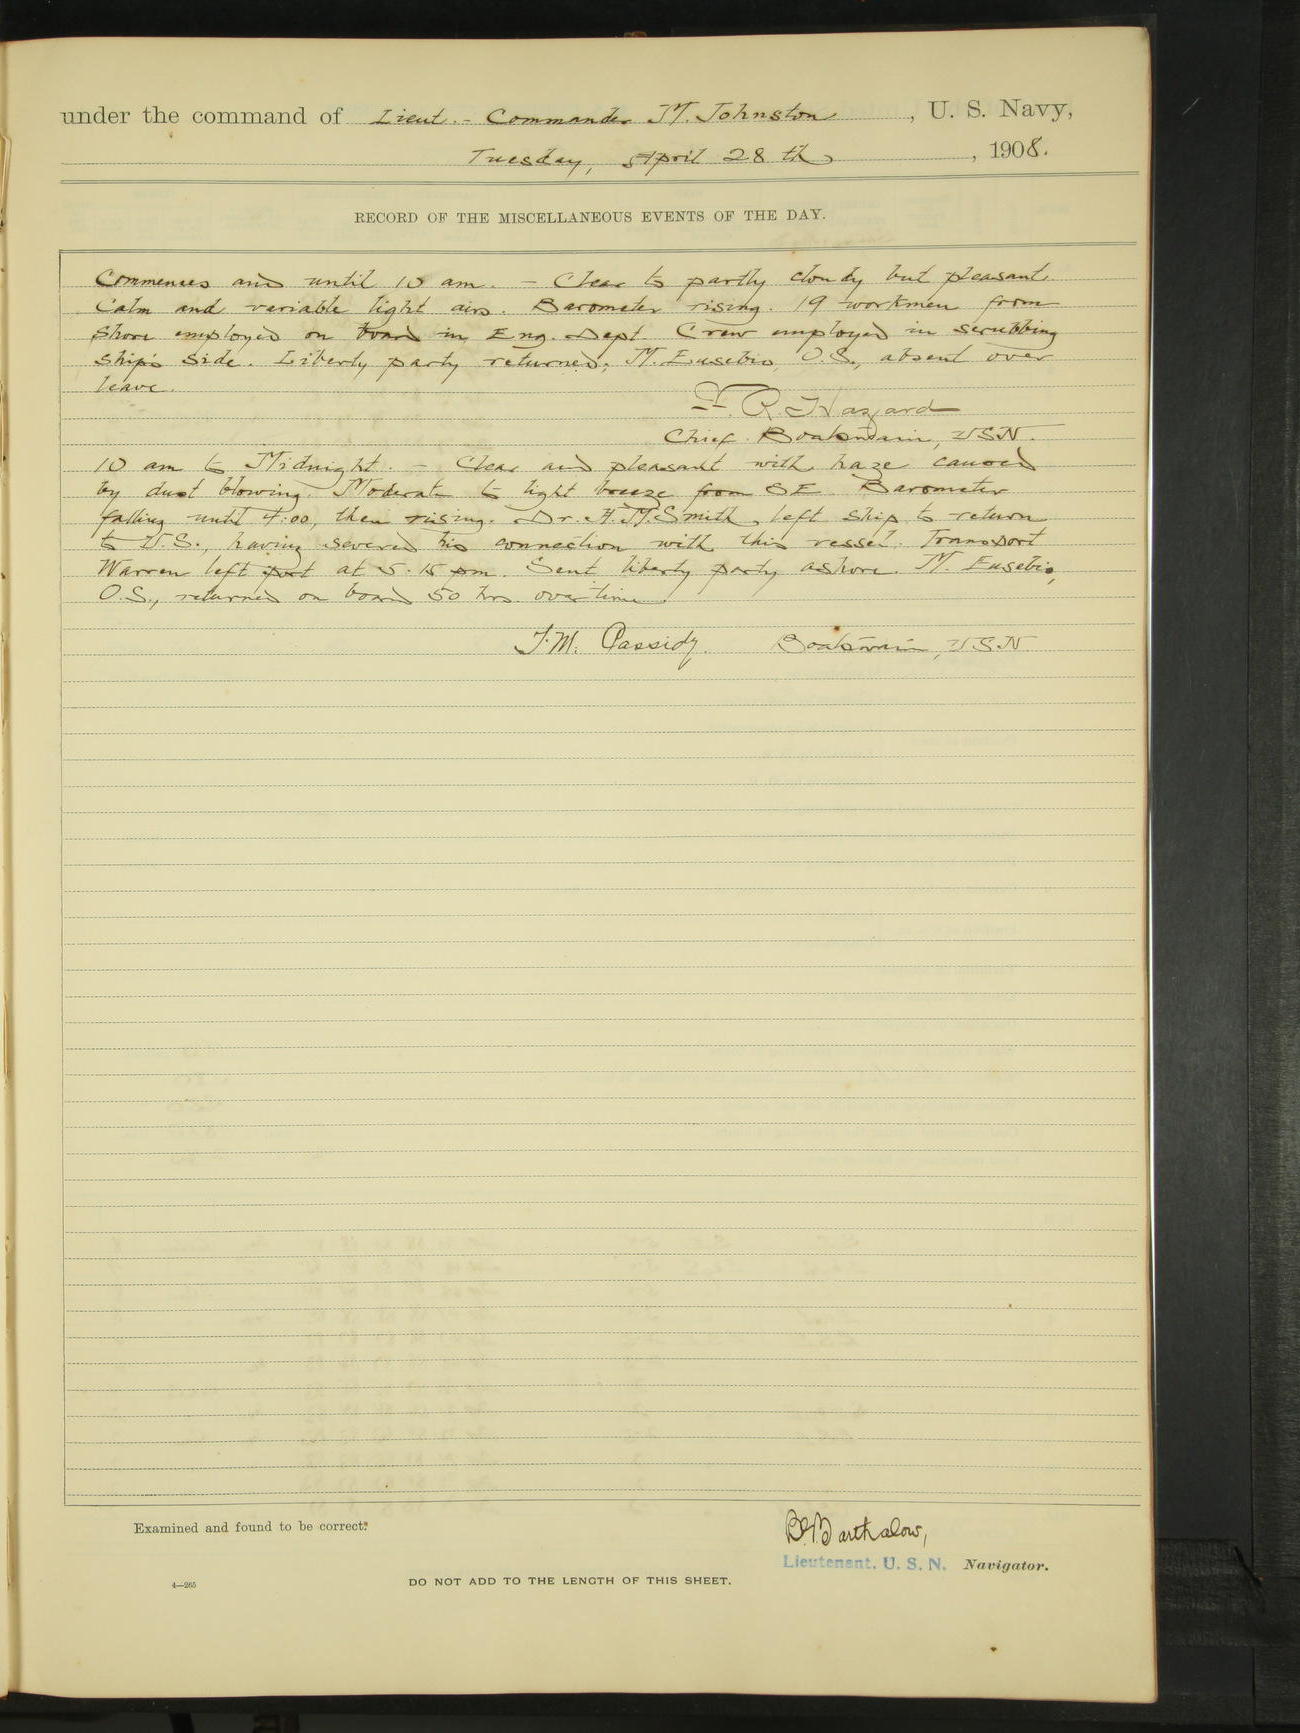 under the command of Lieut.- Commander M. Johnston, U. S. Navy,
Tuesday, April 28th, 1908.
RECORD OF THE MISCELLANEOUS EVENTS OF THE DAY.
Commences and until 10 am. - Clear to partly cloudy but pleasant.
Calm and variable light airs. Barometer rising. 19 workmen from
shore employed on board in Eng. Dept. Crew employed in scrubbing
ship's side. Liberty party returned; M. Eusebio, O.S., absent over
leave.
F. R. Hazard
Chief Boatswain, USN.
10 am to Midnight. - Clear and pleasant with haze caused
by dust blowing. Moderate to light breeze from SE. Barometer
falling until 4:00, then rising. Dr. H. M. Smith, left ship to return
to U.S., having severed his connection with this vessel. Transport
Warren left port at 5.15 pm. Sent liberty party ashore. M. Eusebio,
O.S., returned on board 50 hrs overtime.
T. M. Cassidy. Boatswain, USN
Examined and found to be correct:
Barthalow,
Lieutenant, U. S. N. Navigator.
4—265
DO NOT ADD TO THE LENGTH OF THIS SHEET.